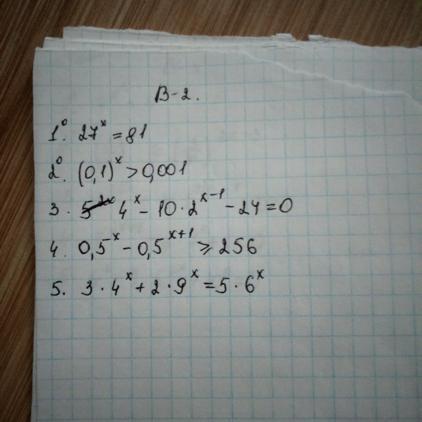 В-2.
1°. 27^x = 81
2°. (0,1)^x > 0,001
3. 4^x - 10 · 2^(x-1) - 24 = 0
4. 0,5^x - 0,5^(x+1) ≥ 256
5. 3 · 4^x + 2 · 9^x = 5 · 6^x